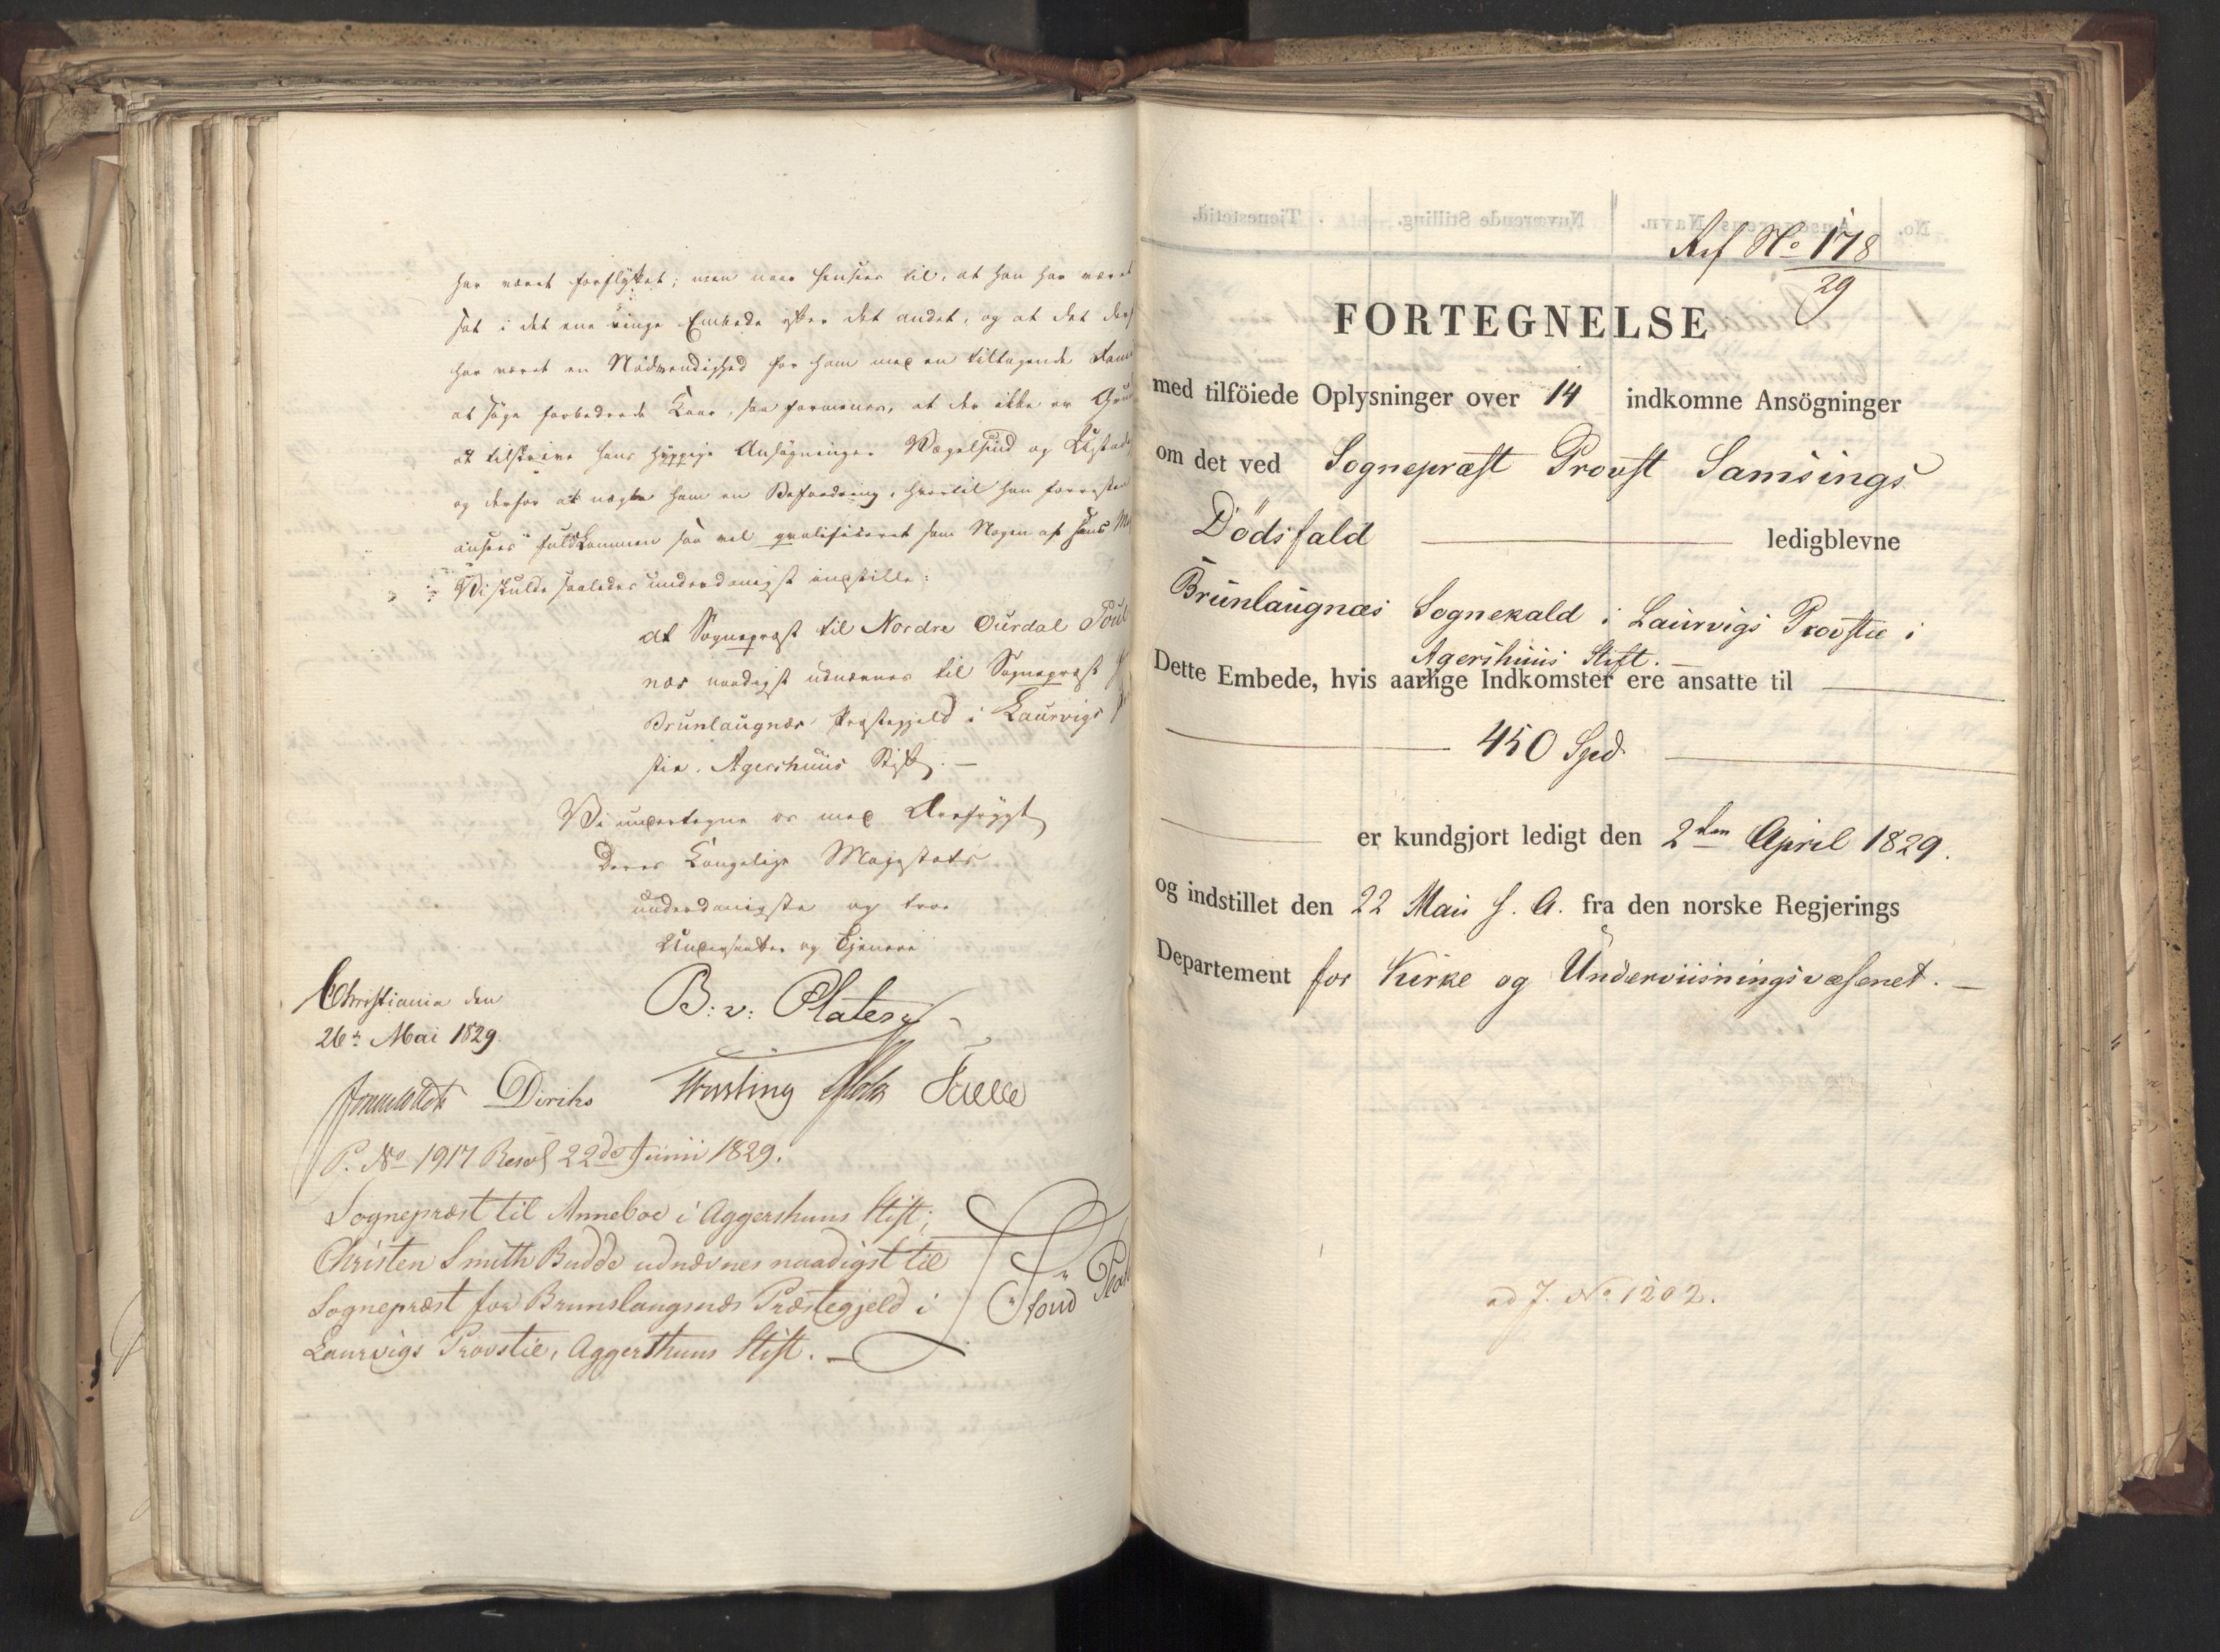 har været forflyttet; men naar hensees til, at han har været
sat i det ene ringe Embede efter det andet, og at det
har været en Nødvendighed for ham med en tiltagende
at søge forbedrede Kaar, saa formenes, at der ikke er
at tilskrive hans hyppige Ansøgninger Vægelsind og
og derfor at nægte ham en Befordring, hvortil han forresten
ansees fuldkommen saa vel qvalificeret som Nogen af hans
Vi skulde saaledes underdanigst indstille:
at Sognepræst til Nordre Ourdal
naadigst udnævnes til Sognepræst
Brunlaugnæs Præstegjeld i Laurvigs
stie, Agershuus Stift. —
Vi undertegne os med Ærefrygt
Deres Kongelige Majestæts
underdanigste og troe
Undersaatter og Tjenere
Christiania den
26de Mai 1829.
B: v: Platen
Diriks
P. No 1917 Resol 22de Junii 1829.
Sognepræst til Anneboe i Aggershuus Stift;
Christen Smith Budde udnævnes naadigst til
Sognepræst for Brunslaugnæs Præstegjeld i
Laurvigs Provstie, Aggershuus Stift. —
Ref No 178
29
FORTEGNELSE
med tilföiede Oplysninger over 14 indkomne Ansögninger
om det ved Sognepræst Provst Samsings
Dödsfald — ledigblevne
Brunlaugnæs Sognekald i Laurvigs Provstie i
Agershuus Stift. —
Dette Embede, hvis aarlige Indkomster ere ansatte til —
— 450 Spd. —
— er kundgjort ledigt den 2den April 1829.
og indstillet den 22 Maii s. A. fra den norske Regjerings
Departement for Kirke og Underviisningsvæsenet. —
ad J. No 1202.